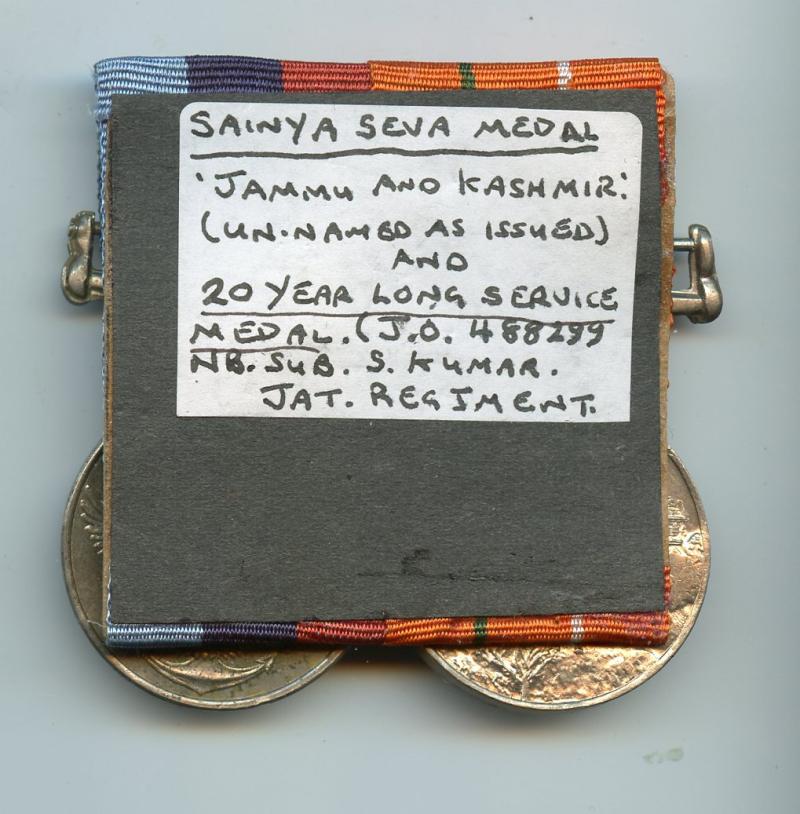 SAINYA SEVA MEDAL
'JAMMU AND KASHMIR'.
(UN-NAMED AS ISSUED)
AND
20 YEAR LONG SERVICE
MEDAL. (J.O. 488299
NB. SUB. S. KUMAR.
JAT. REGIMENT.